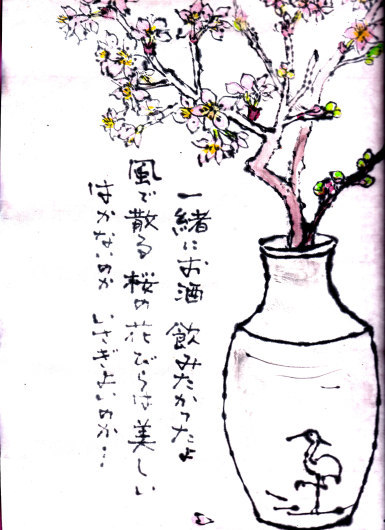 一緒にお酒 飲みたかったよ
風で散る 桜の花びらは美しい
はかないのか いさぎよいのか…